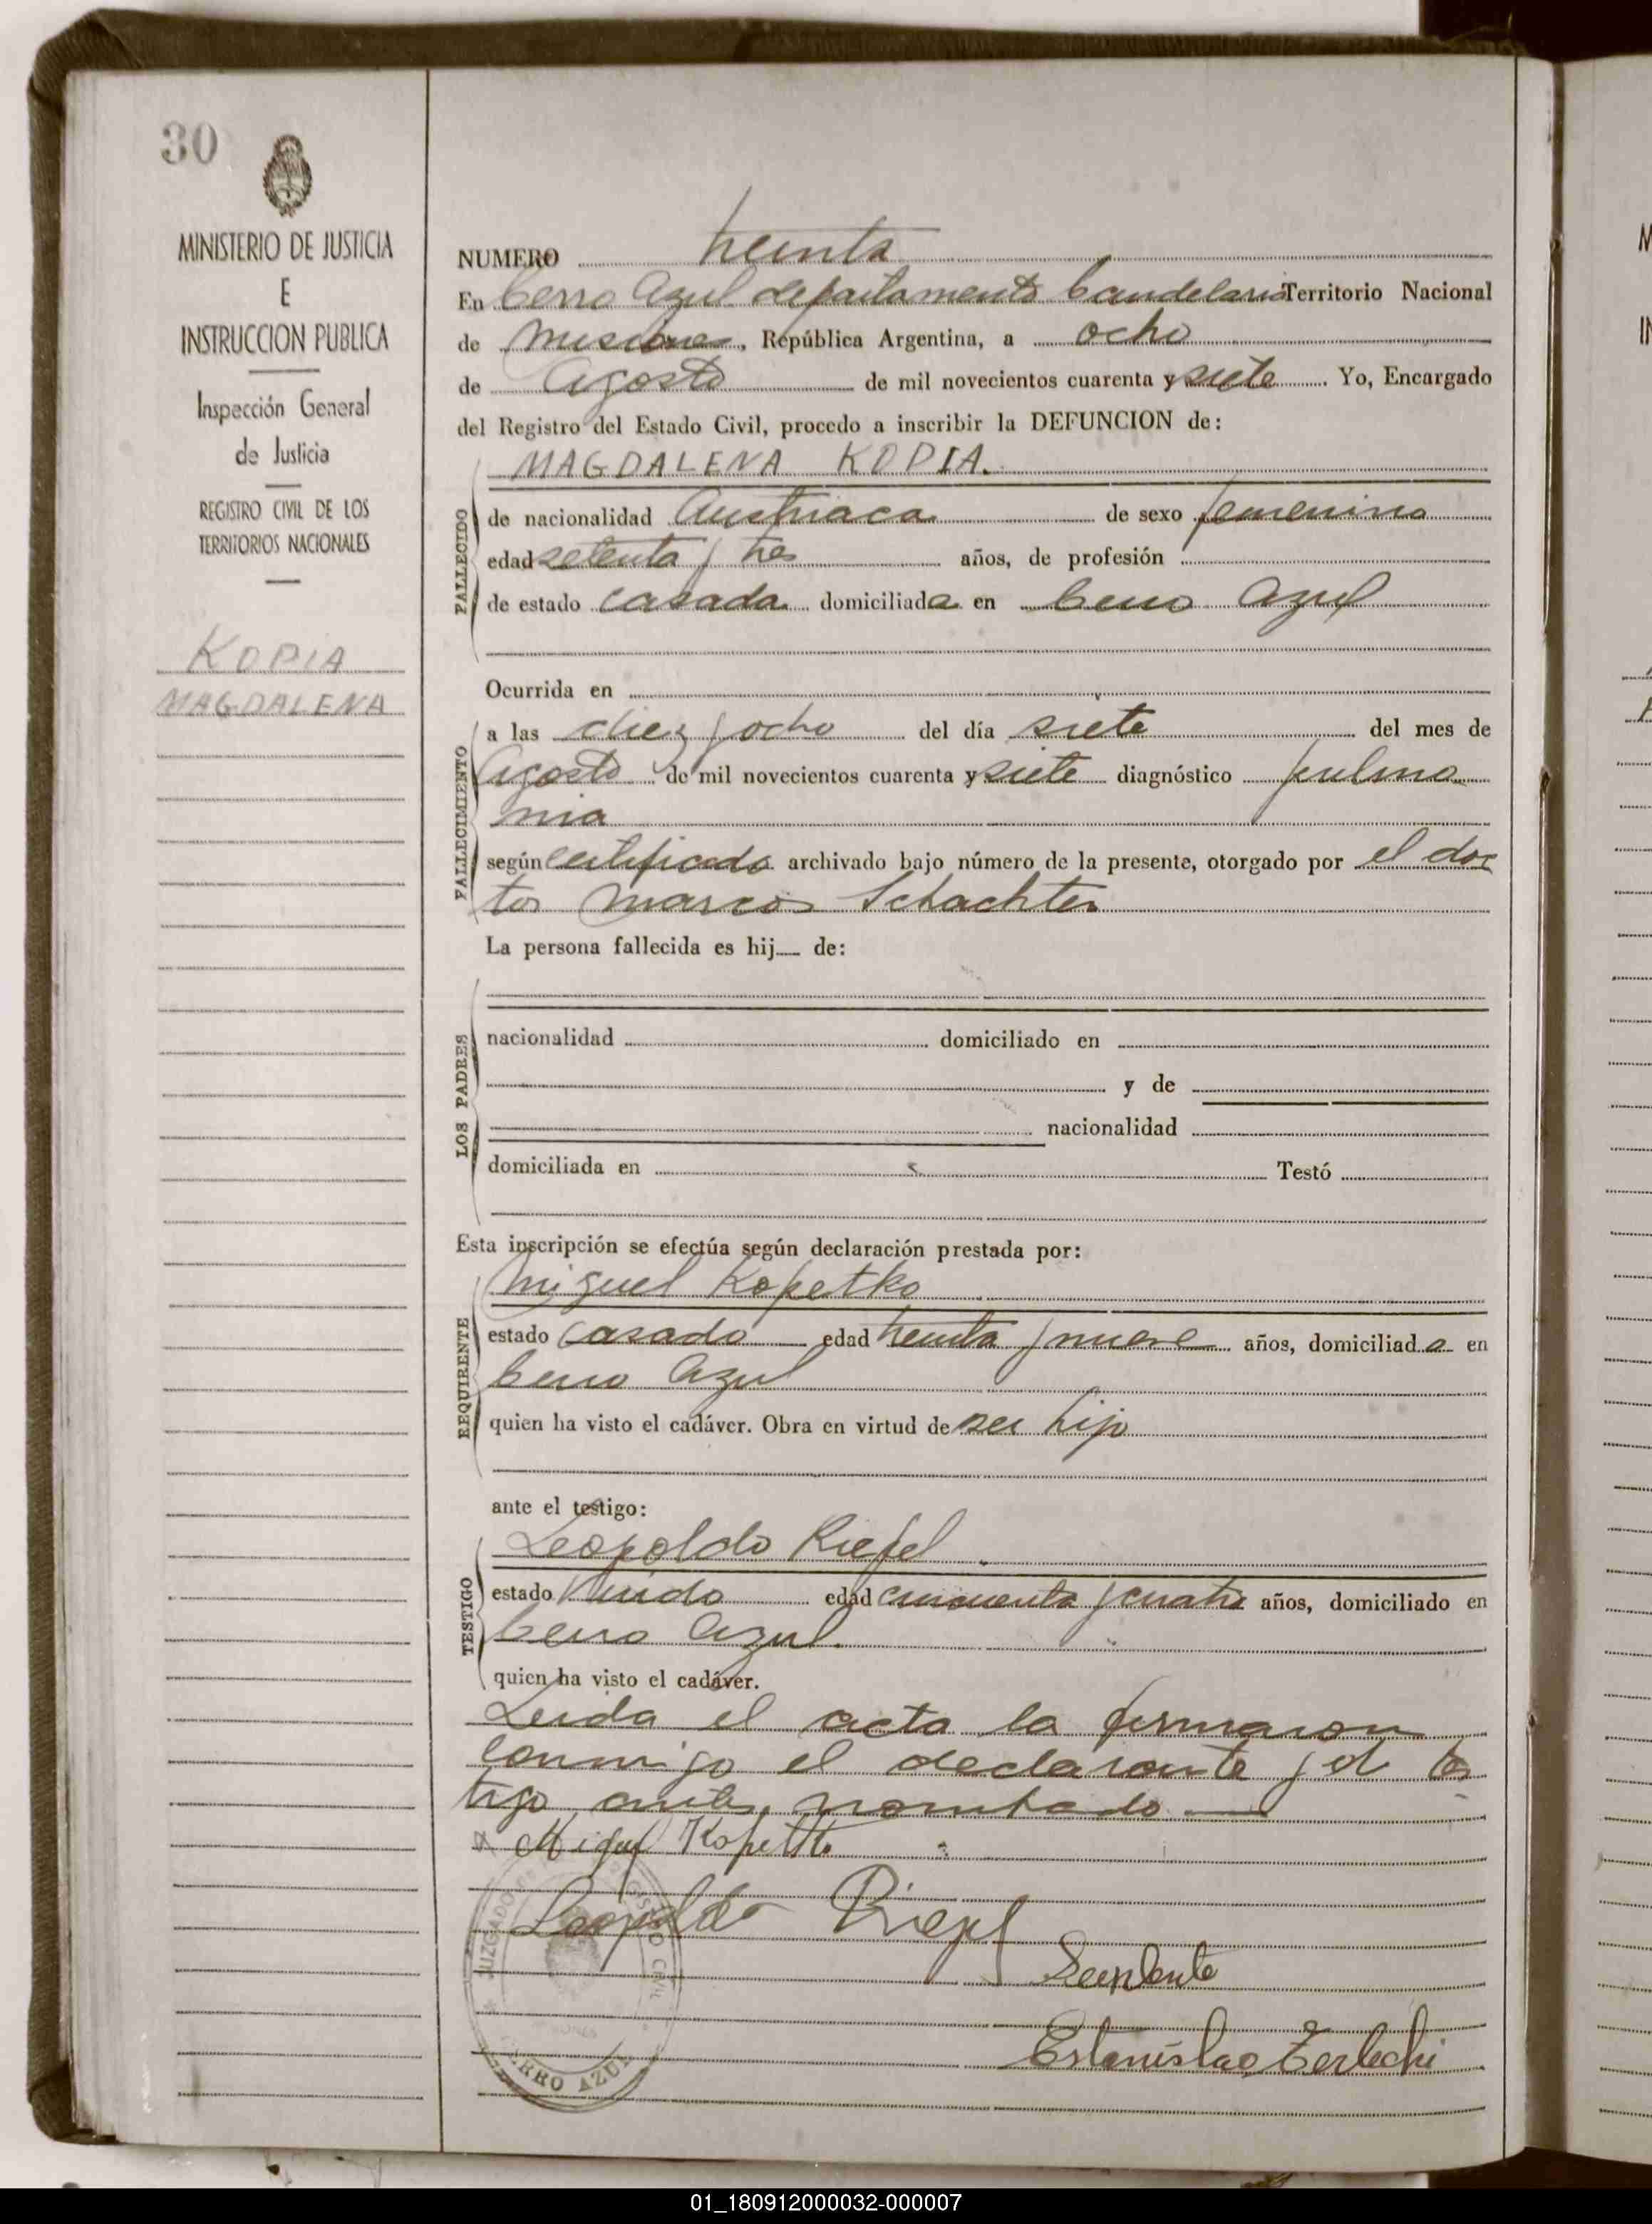 30
MINISTERIO DE JUSTICIA
E
INSTRUCCION PUBLICA
Inspección General
de Justicia
REGISTRO CIVIL DE LOS
TERRITORIOS NACIONALES
KOPIA
MAGDALENA
NUMERO treinta
En Cerro Azul departamento Candelaria Territorio Nacional
de Misiones, República Argentina, a ocho
de Agosto de mil novecientos cuarenta y siete. Yo, Encargado
del Registro del Estado Civil, procedo a inscribir la DEFUNCION de:
MAGDALENA KOPIA.
FALLECIDO
de nacionalidad Austriaca de sexo femenino
edad setenta y tres años, de profesión
de estado casada domiciliada en Cerro Azul
Ocurrida en
FALLECIMIENTO
a las diez y ocho del día siete del mes de
Agosto de mil novecientos cuarenta y siete diagnóstico pulmo
nia
según certificado archivado bajo número de la presente, otorgado por el doc
tor Marcos Schachter
La persona fallecida es hij de:
LOS PADRES
nacionalidad domiciliado en
y de
nacionalidad
domiciliada en Testó
Esta inscripción se efectúa según declaración prestada por:
REQUIRENTE
Miguel Kopetko
estado casado edad treinta y nueve años, domiciliado en
Cerro Azul
quien ha visto el cadáver. Obra en virtud de ser hijo
ante el testigo:
TESTIGO
Leopoldo Riefel
estado Viudo edad cincuenta y cuatro años, domiciliado en
Cerro Azul.
quien ha visto el cadáver.
Leida el acta la firmaron
conmigo el declarante y el tes
tigo antes nombrado
Miguel Kopetko
Leopoldo Riepl
Suplente
Estanislao Terlecki
JUZGADO CIVIL
CERRO AZUL
01_180912000032-000007